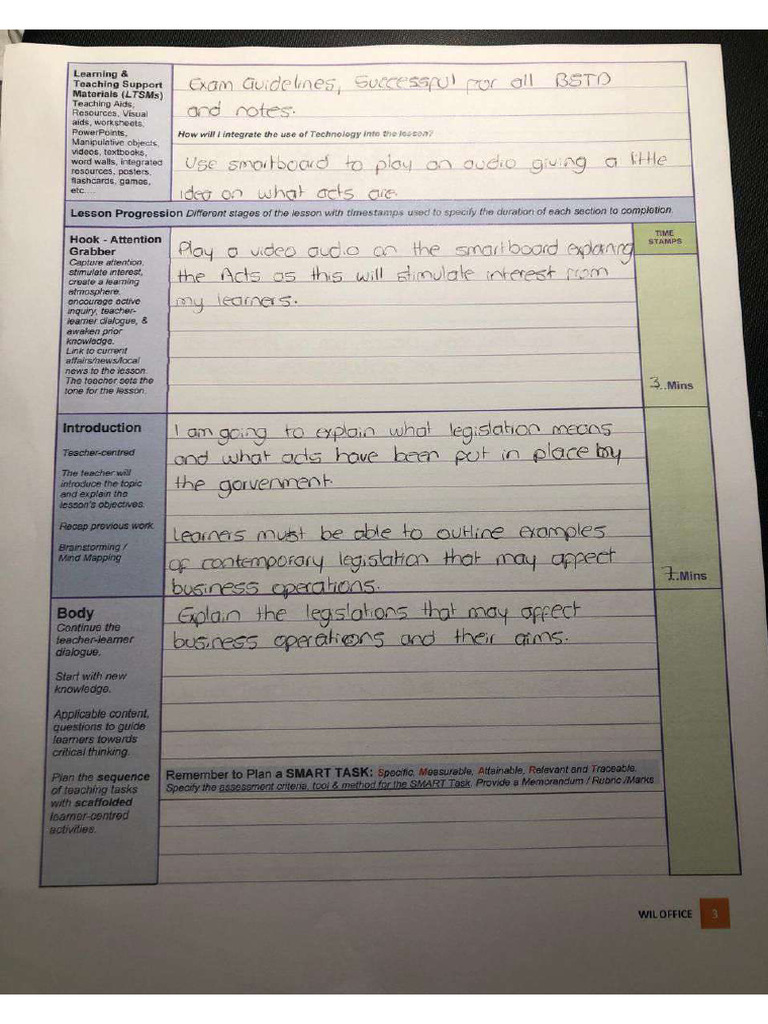 Learning &
Teaching Support
Materials (LTSMs)
Teaching Aids,
Resources, Visual
aids, worksheets,
PowerPoints,
Manipulative objects,
videos, textbooks,
word walls, integrated
resources, posters,
flashcards, games,
etc....
Exam Guidelines, Successful for all BSTD
and notes.
How will I integrate the use of Technology into the lesson?
Use smartboard to play an audio giving a little
idea on what acts are.
Lesson Progression Different stages of the lesson with timestamps used to specify the duration of each section to completion.
Hook - Attention
Grabber
Capture attention,
stimulate interest,
create a learning
atmosphere,
encourage active
inquiry, teacher-
learner dialogue, &
awaken prior
knowledge.
Link to current
affairs/news/local
news to the lesson.
The teacher sets the
tone for the lesson.
Play a video audio on the smartboard explaining
the Acts as this will stimulate interest from
my learners.
TIME
STAMPS
3..Mins
Introduction
Teacher-centred
The teacher will
introduce the topic
and explain the
lesson's objectives.
Recap previous work.
Brainstorming /
Mind Mapping
I am going to explain what legislation means
and what acts have been put in place by
the gorvenment
Learners must be able to outline examples
of contemporary legislation that may affect
business operations.
7..Mins
Body
Continue the
teacher-learner
dialogue.
Start with new
knowledge.
Applicable content,
questions to guide
learners towards
critical thinking.
Plan the sequence
of teaching tasks
with scaffolded
learner-centred
activities.
Explain the legislations that may affect
business operations and their aims.
Remember to Plan a SMART TASK: Specific, Measurable, Attainable, Relevant and Traceable.
Specify the assessment criteria, tool & method for the SMART Task. Provide a Memorandum / Rubric /Marks
WIL OFFICE 3